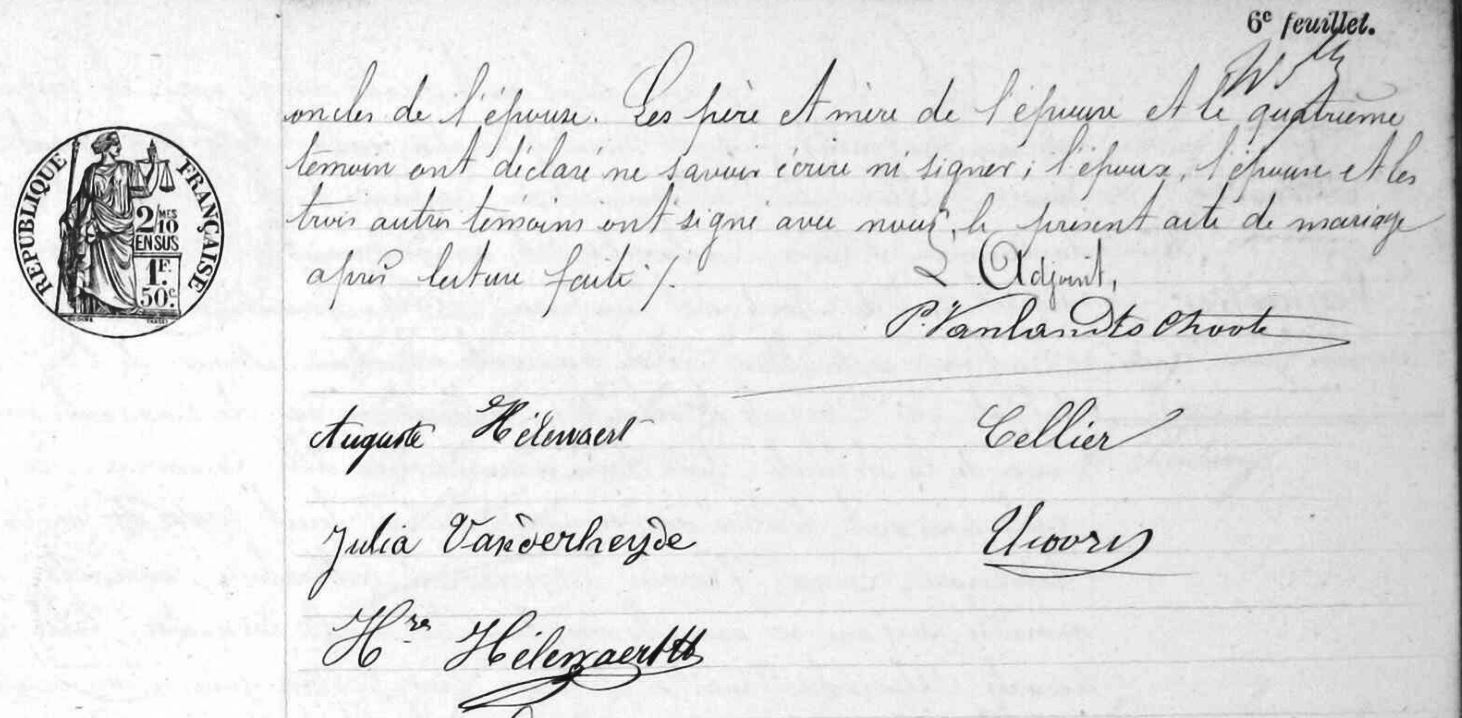 6e feuillet.
oncles de l'épouse. Les père et mère de l'épouse et le quatrième
témoin ont déclaré ne savoir écrire ni signer ; l'époux, l'épouse et les
trois autres témoins ont signé avec nous, le présent acte de mariage
après lecture faite ./.
L'Adjoint,
P. Vanlandtschoote
RÉPUBLIQUE FRANÇAISE
2/10 MES
EN SUS
1F.
50c.
Auguste Hélewaert Cellier
Julia Vanderheyde
Hre Hélewaert